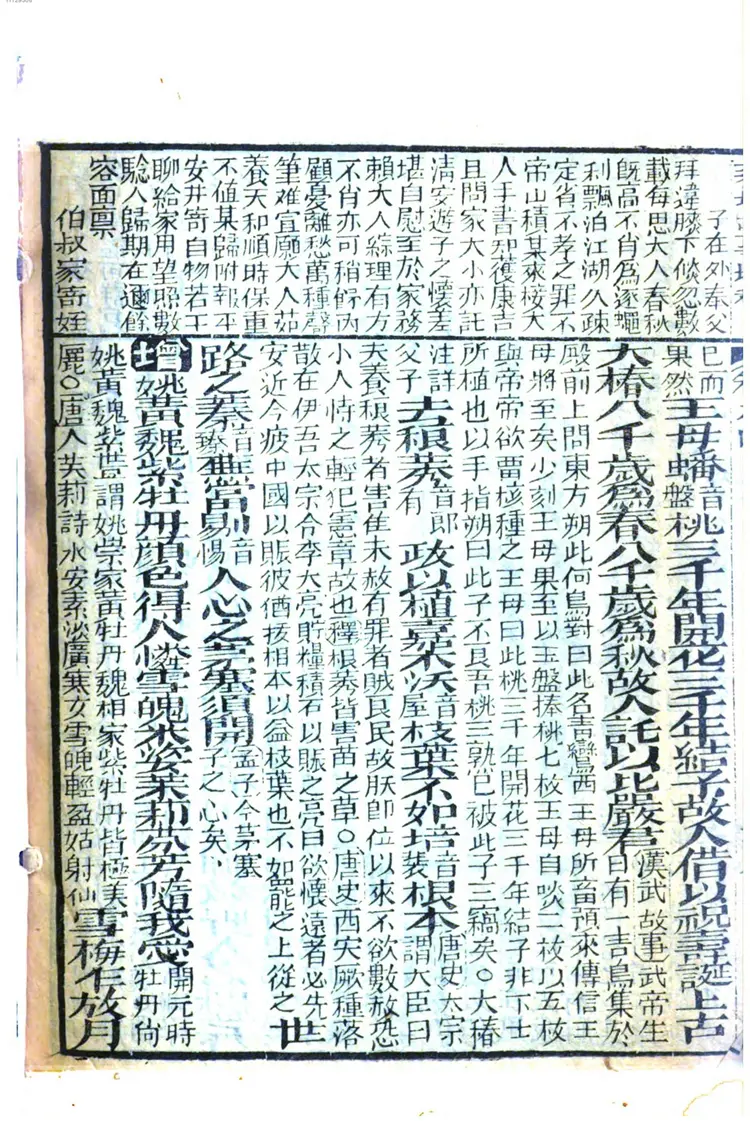 子在外奉父
拜違膝下倐忽數
載每思大人春秋
旣高不肖爲逐蠅
利飄泊江湖久疎
定省不孝之罪不
帝山積某來接大
人手書知獲康吉
且問家大小亦託
清安遊子之懷差
堪自慰至於家務
賴大人綜理有方
不肖亦可稍舒內
顧憂離愁萬種聲
筆难宣願大人茹
養天和順時保重
不值某歸附報平
安并寄自物若干
聊給家用望照數
騐人歸期在邇餘
容面禀
伯叔家寄姪
已而果然王母蟠音盤桃三千年開花三千年結子故人借以祝壽誕上古
大椿八千歲爲春八千歲爲秋故人託以比嚴君漢武故事武帝生日有一青鳥集於
殿前上問東方朔此何鳥對曰此名青鸞西王母所畜預來傳信王
母將至矣少刻王母果至以玉盤捧桃七枚王母自啖二枚以五枚
與帝帝欲留核種之王母曰此桃三千年開花三千年結子非下土
所植也以手指朔曰此子不良吾桃三熟已被此子三竊矣○大椿
注詳父子去稂莠音郎有政以植嘉禾沃音屋枝葉不如培音裴根本唐史太宗謂大臣曰
夫養稂莠者害隹未赦有罪者賊良民故朕卽位以來不欲數赦恐
小人恃之輕犯憲章故也釋稂莠皆害苗之草○唐史西突厥種落
散在伊吾太宗令李大亮貯糧積石以賑之亮曰欲懷遠者必先
安近今疲中國以賑彼猶拔根本以益枝葉也不如罷之上從之世
路之蓁音臻蕪當剔音惕人心之茅塞須開孟子今茅塞子之心矣
增姚黃魏紫牡丹顔色得人憐雪魄氷姿茉莉芬芳隨我愛開元時牡丹尙
姚黃魏紫世謂姚崇家黃牡丹魏相家紫牡丹皆極美
麗○唐人茉莉詩水安素淡廣寒女雪魄輕盈姑射仙雪梅乍放月